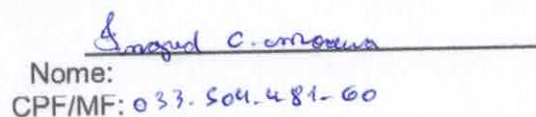 Ingrid C. Moreira
Nome:
CPF/MF: 033.504.481-60